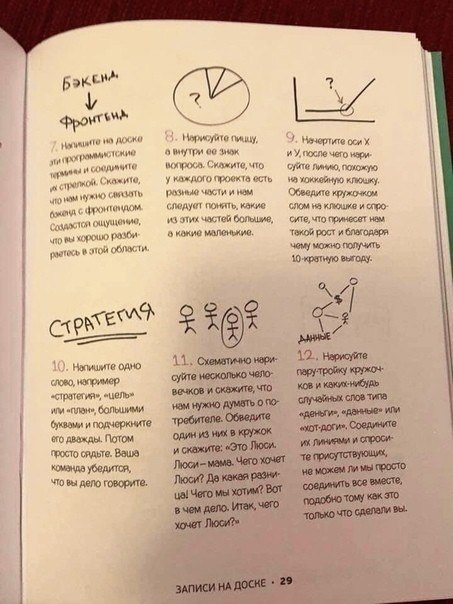 БЭКЕНД
ФРОНТЕНД
7. Напишите на доске
эти программистские
термины и соедините
их стрелкой. Скажите,
что нам нужно связать
бэкенд с фронтендом.
Создастся ощущение,
что вы хорошо разби-
раетесь в этой области.
?
8. Нарисуйте пиццу,
а внутри ее знак
вопроса. Скажите, что
у каждого проекта есть
разные части и нам
следует понять, какие
из этих частей большие,
а какие маленькие.
?
9. Начертите оси X
и У, после чего нари-
суйте линию, похожую
на хоккейную клюшку.
Обведите кружочком
слом на клюшке и спро-
сите, что принесет нам
такой рост и благодаря
чему можно получить
10-кратную выгоду.
СТРАТЕГИЯ
10. Напишите одно
слово, например
«стратегия», «цель»
или «план», большими
буквами и подчеркните
его дважды. Потом
просто сядьте. Ваша
команда убедится,
что вы дело говорите.
11. Схематично нари-
суйте несколько чело-
вечков и скажите, что
нам нужно думать о по-
требителе. Обведите
один из них в кружок
и скажите: «Это Люси.
Люси – мама. Чего хочет
Люси? Да какая разни-
ца! Чего мы хотим? Вот
в чем дело. Итак, чего
хочет Люси?»
$
ДАННЫЕ
12. Нарисуйте
пару-тройку кружоч-
ков и каких-нибудь
случайных слов типа
«деньги», «данные» или
«хот-доги». Соедините
их линиями и спроси-
те присутствующих,
не можем ли мы просто
соединить все вместе,
подобно тому как это
только что сделали вы.
ЗАПИСИ НА ДОСКЕ • 29